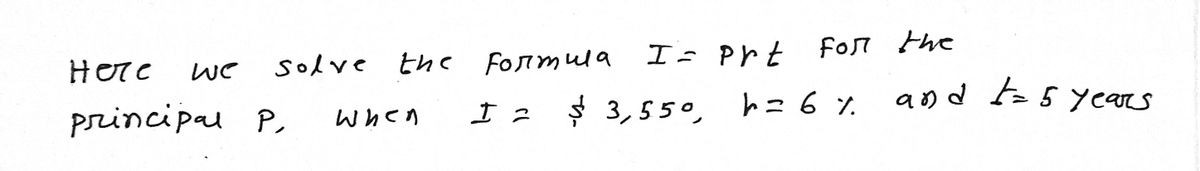 Here we solve the formula I = Prt for the
principal P, when I = $ 3,550, r = 6 % and t = 5 years